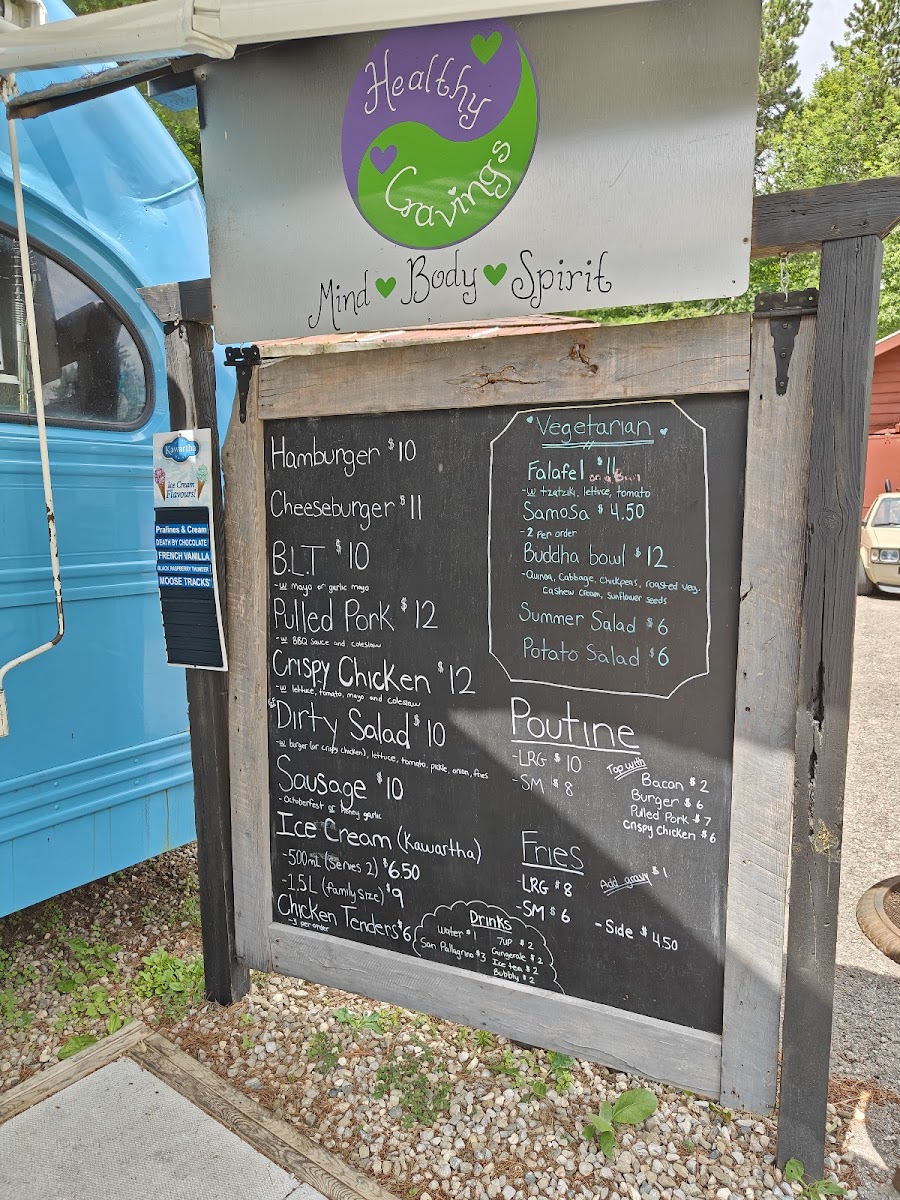 Healthy
Cravings
Mind Body Spirit
Kawartha
Ice Cream
Flavours!
Pralines & Cream
DEATH BY CHOCOLATE
FRENCH VANILLA
BLACK RASPBERRY THUNDER
MOOSE TRACKS
Hamburger $10
Cheeseburger $11
B.L.T $10
-w mayo or garlic mayo
Pulled Pork $12
-w BBQ Sauce and coleslaw
Crispy Chicken $12
-w lettuce, tomato, mayo and coleslaw
Dirty Salad $10
-w burger (or crispy chicken), lettuce, tomato, pickle, onion, fries
Sausage $10
-Octoberfest or Honey garlic
Ice Cream (Kawartha)
-500mL (Serves 2) $6.50
-1.5L (family size) $9
Chicken Tenders $6
-3 per order
Vegetarian
Falafel $11
on a Bun
-w tzatziki, lettuce, tomato
Samosa $4.50
-2 Per order
Buddha bowl $12
-Quinoa, Cabbage, chickpeas, roasted veg,
Cashew Cream, Sunflower seeds
Summer Salad $6
Potato Salad $6
Poutine
-LRG $10
-SM $8
Top with
Bacon $2
Burger $6
Pulled Pork $7
Crispy Chicken $6
Fries
-LRG $8
-SM $6
Add gravy $1
-Side $4.50
Drinks
Water $1
San Pallagrino $3
7UP $2
Gingerale $2
Ice tea $2
Bubbly $2